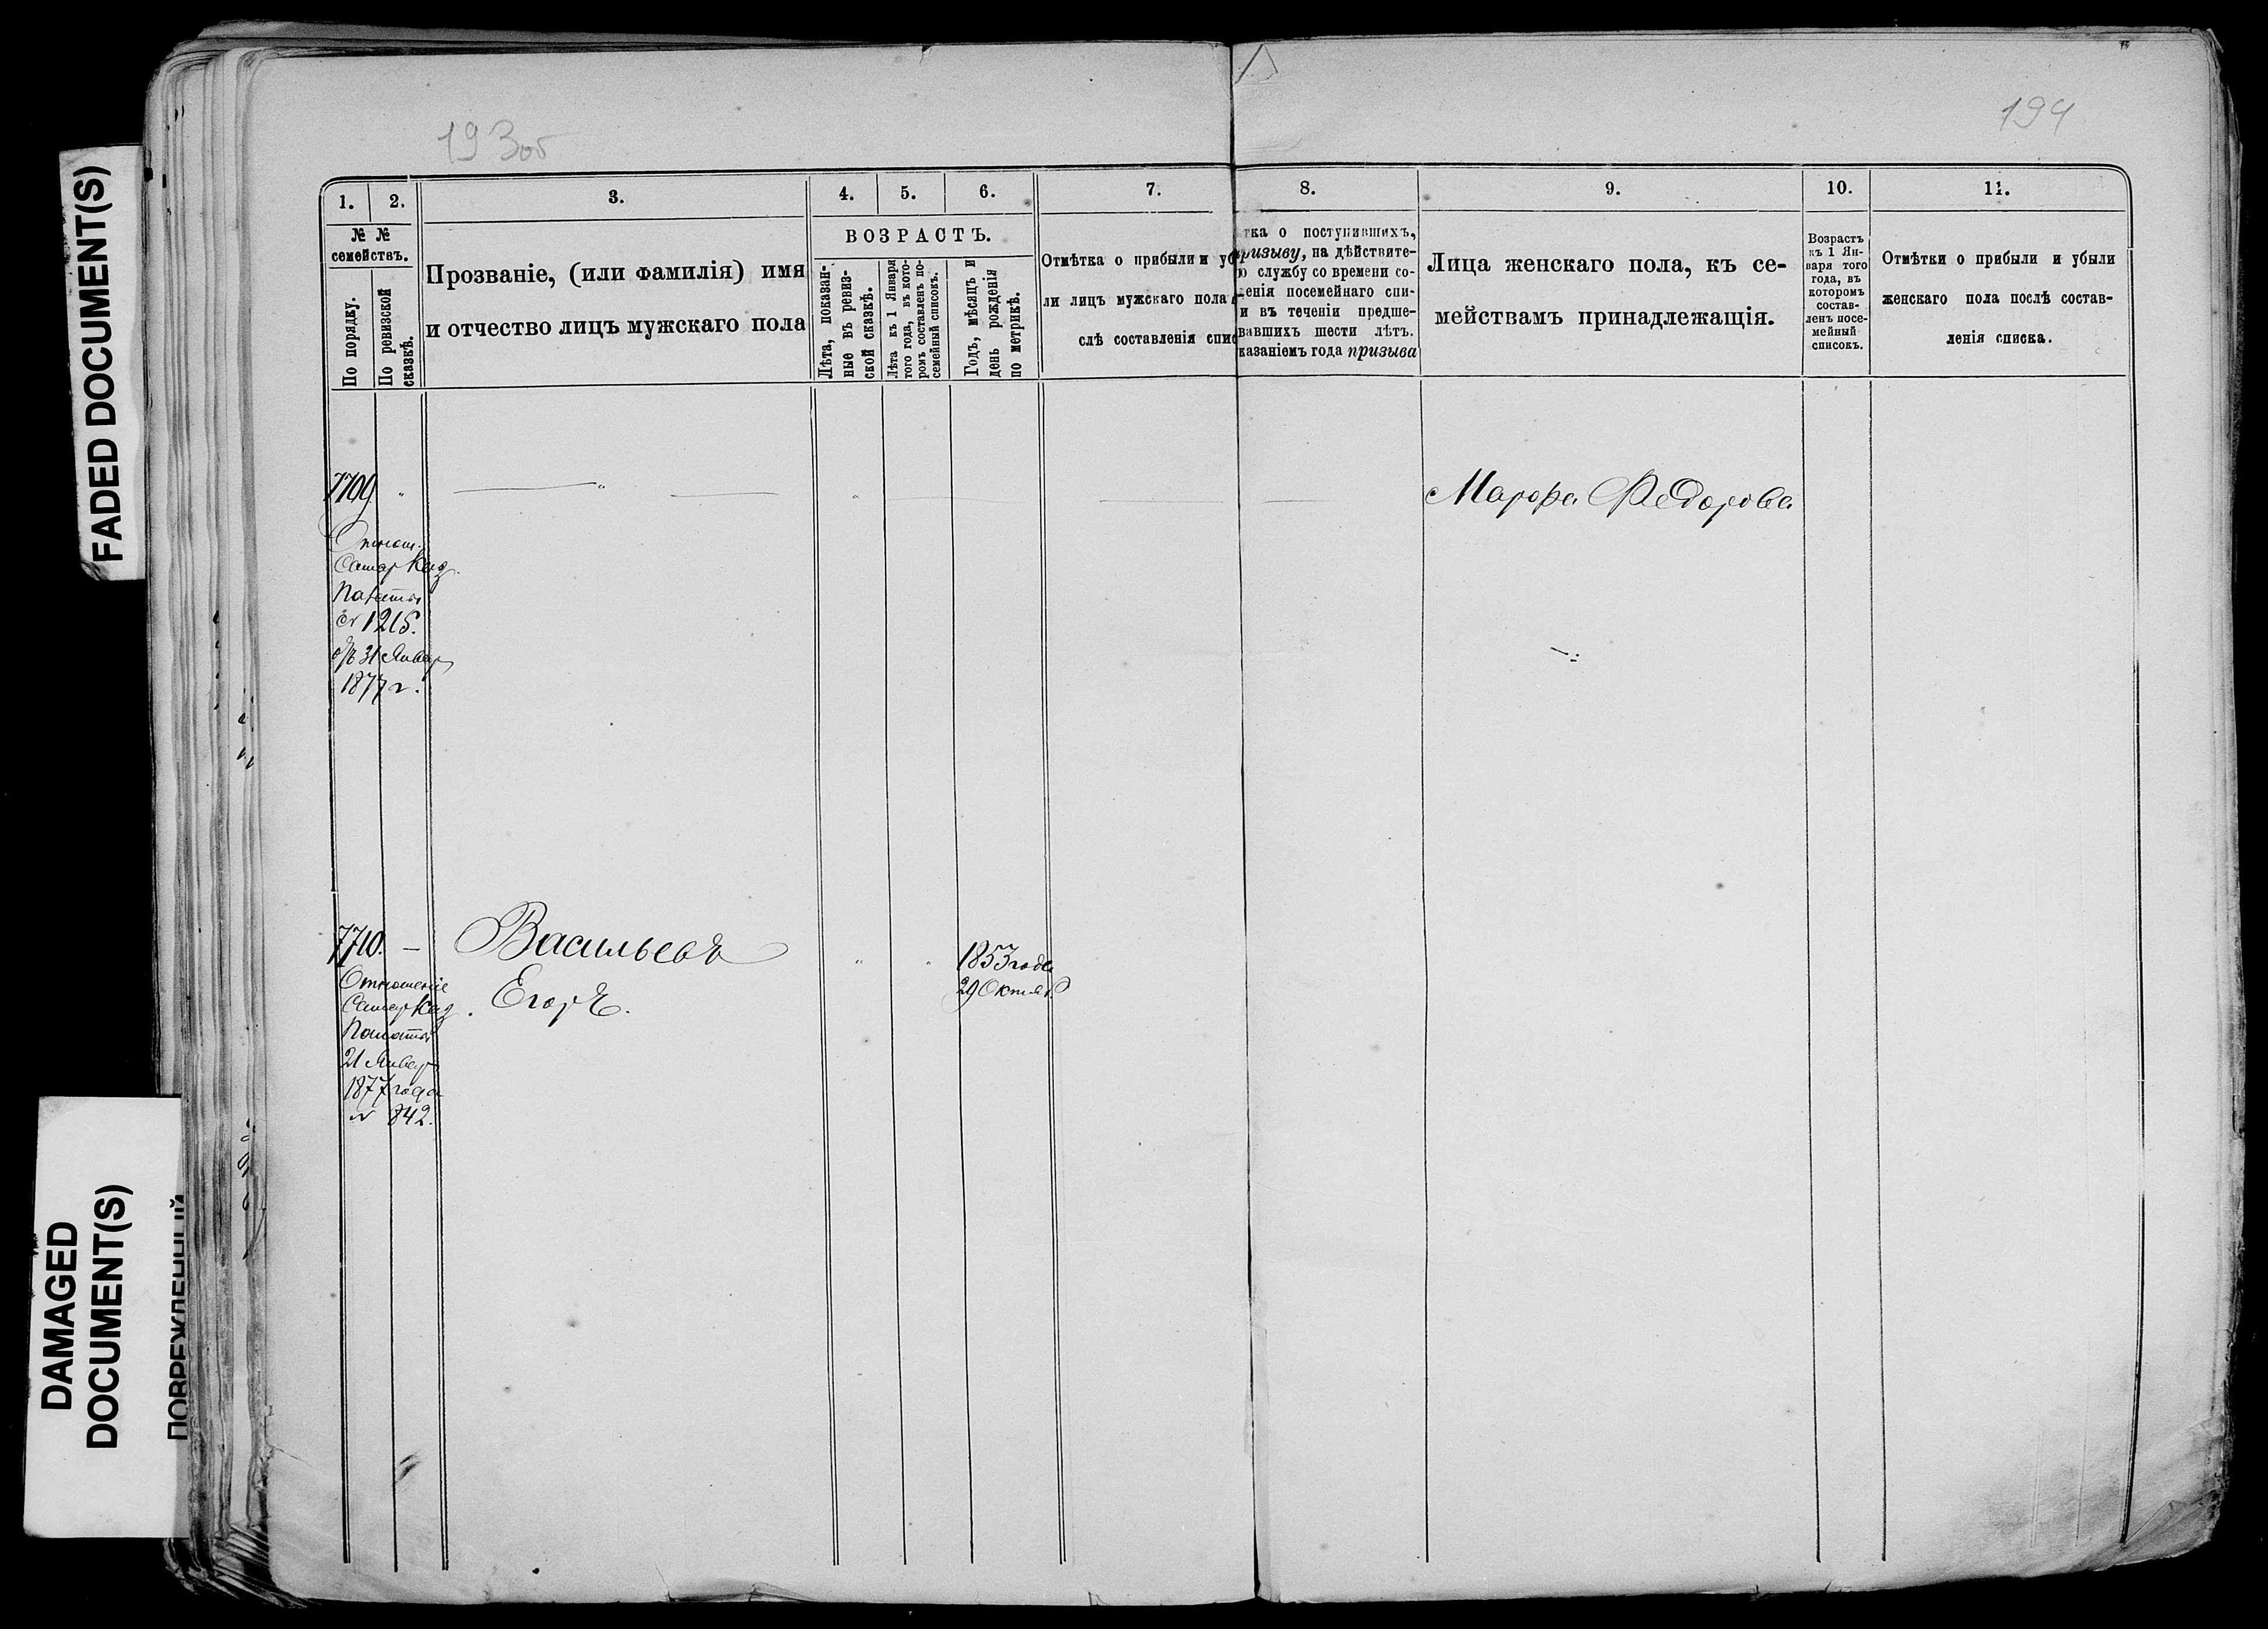 FADED DOCUMENT(S)
DAMAGED
DOCUMENT(S)
ПОВРЕЖДЕННЫЙ
193об
194
1.
2.
3.
4.
5.
6.
7.
8.
9.
10.
11.
№ №
семействъ.
По порядку.
По ревизской
сказкѣ.
Прозваніе, (или фамилія) имя
и отчество лицъ мужскаго пола
ВОЗРАСТЪ.
Лѣта, показан-
ные въ ревиз-
ской сказкѣ.
Лѣта къ 1 Января
того года, въ кото-
ромъ составленъ по-
семейный списокъ.
Годъ, мѣсяцъ и
день рожденія
по метрикѣ.
Отмѣтка о прибыли и уб
ли лицъ мужскаго пола
слѣ составленія спис
тка о поступившихъ,
призыву, на дѣйствите-
ю службу со времени со-
енія посемейнаго спи-
и въ теченіи предше-
вавшихъ шести лѣтъ.
казаніемъ года призыва
Лица женскаго пола, къ се-
мействамъ принадлежащія.
Возрастъ
къ 1 Ян-
варя того
года, въ
которомъ
состав-
ленъ посе-
мейный
списокъ.
Отмѣтки о прибыли и убыли
женскаго пола послѣ состав-
ленія списка.
7709
Марфа Федорова
Отнош.
Самар Каз.
Палаты
№ 1215.
отъ 31 Январ
1877 г.
7710. —
Васильевъ
Егоръ.
1853 года
29 Октяб.
Отношеніе
Самар Каз.
Палаты
21 Январ
1877 года
№ 842.